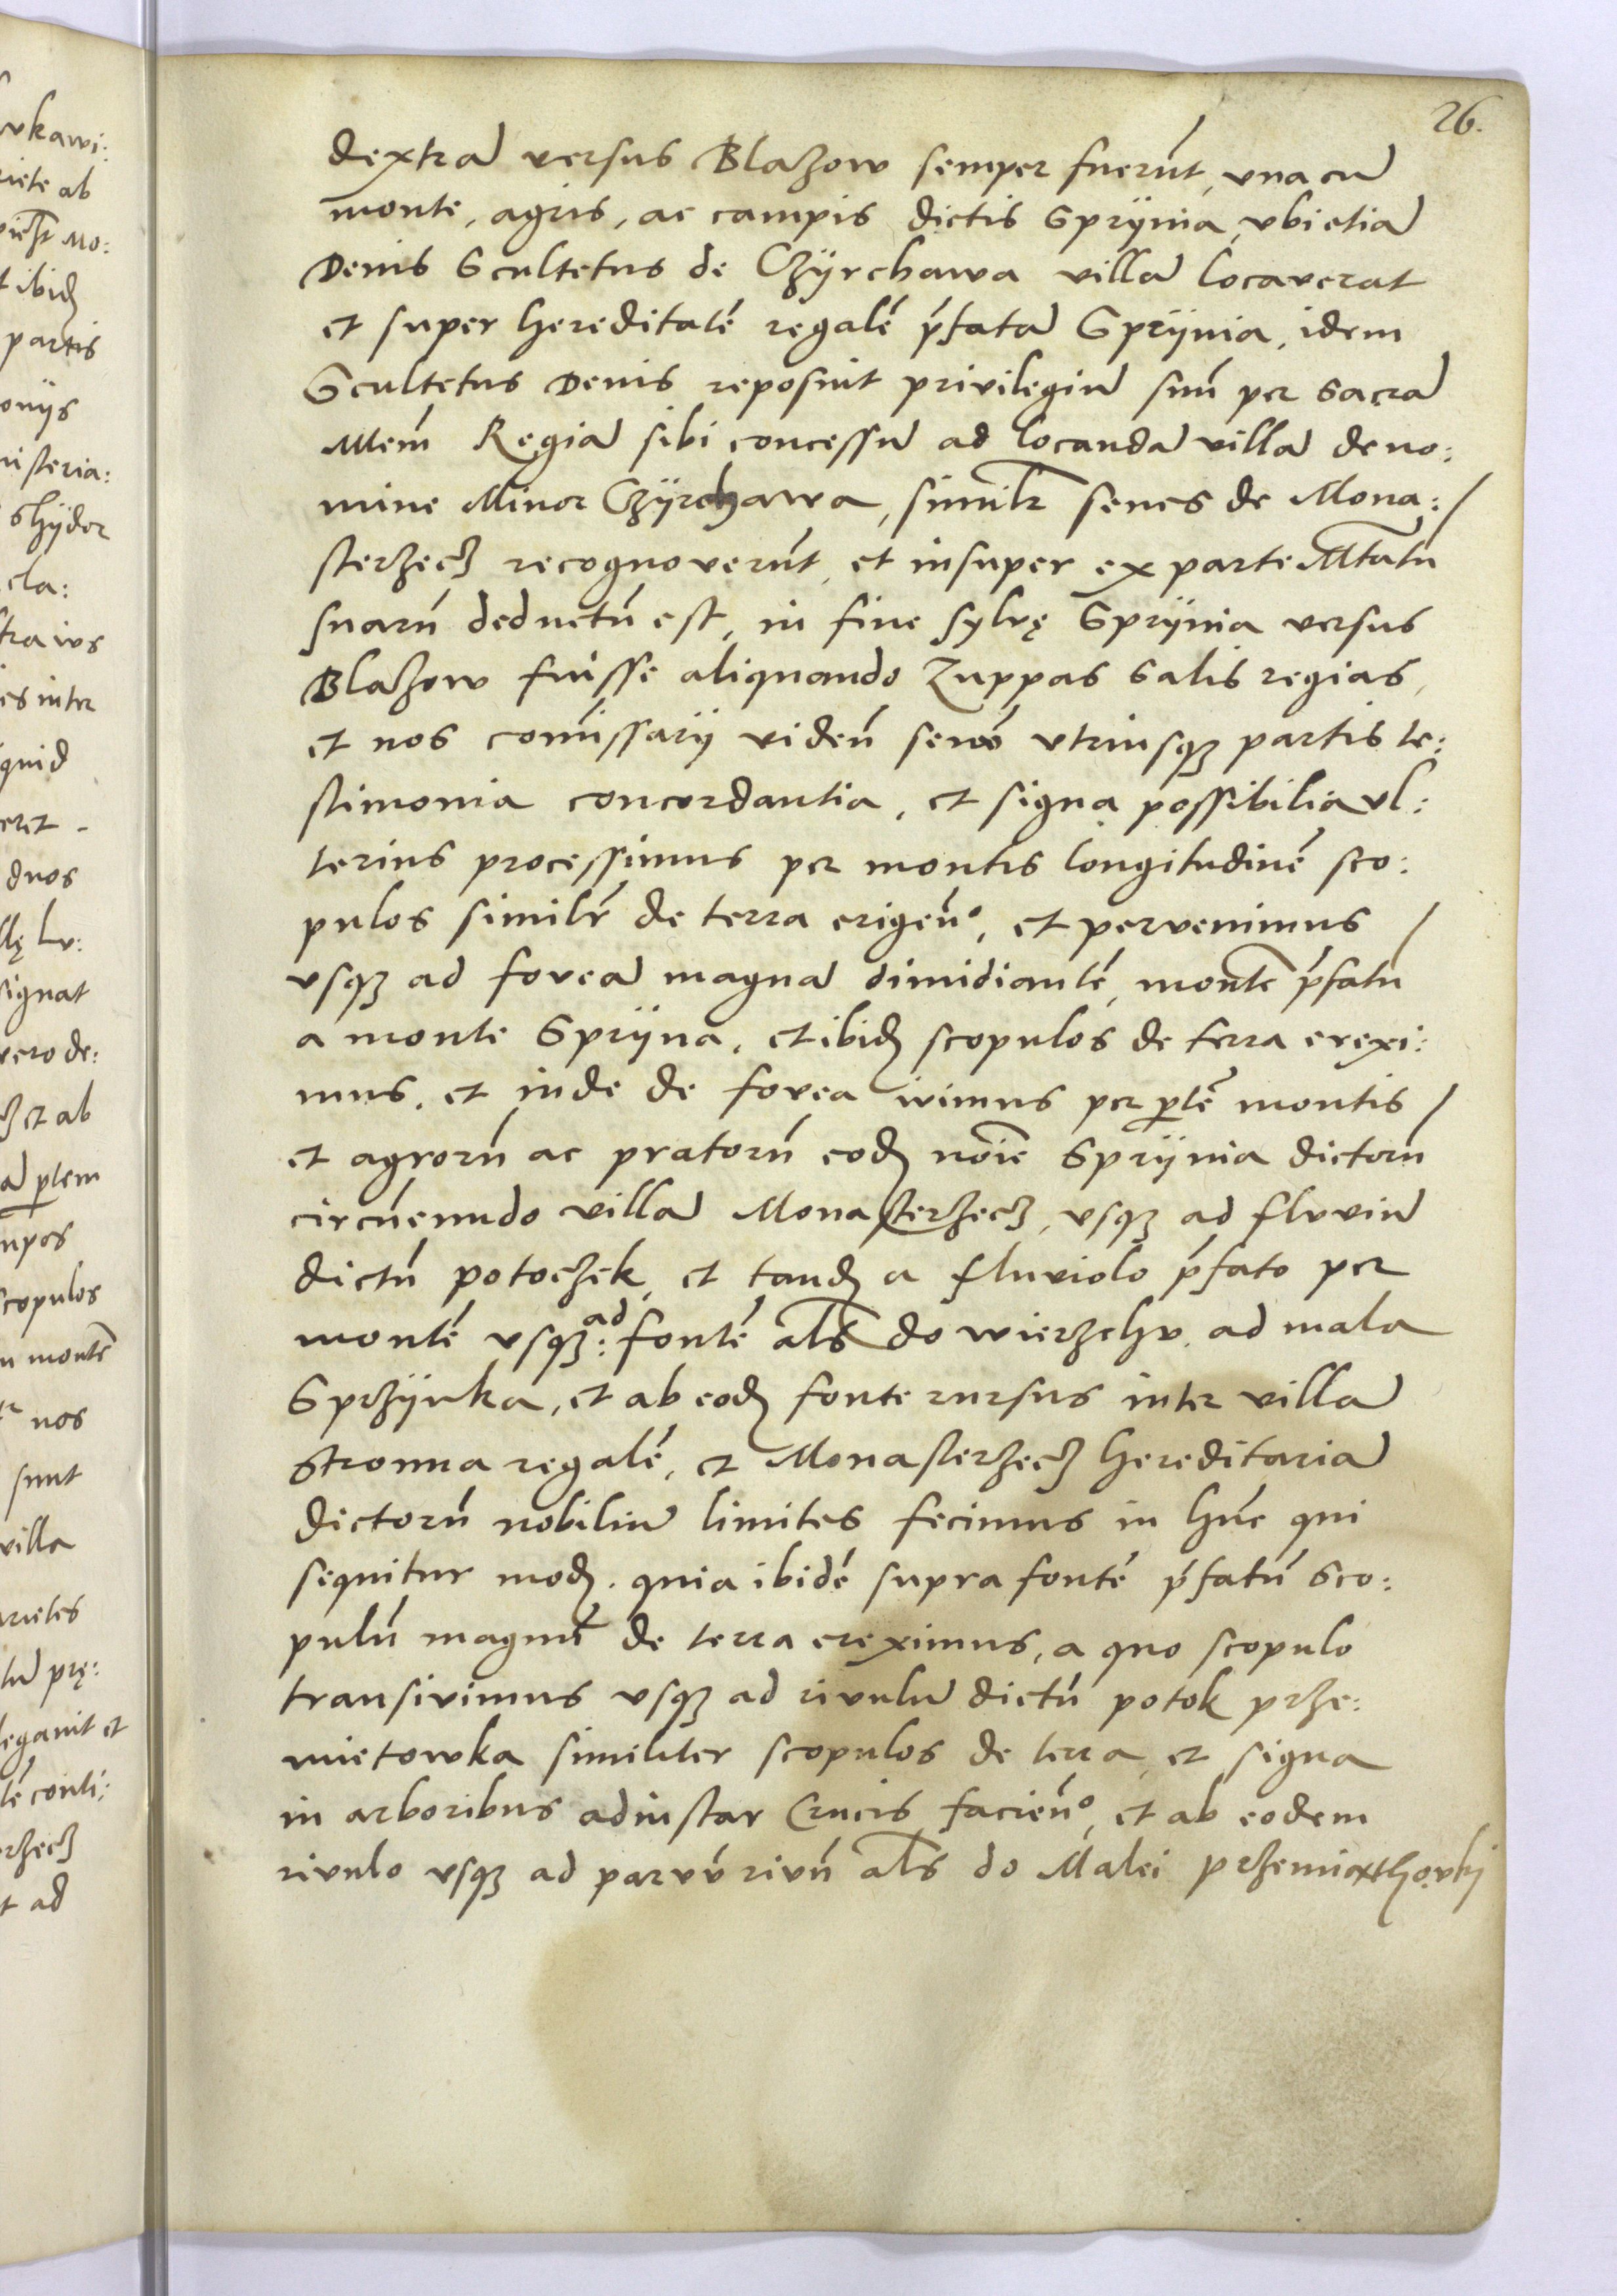 26.
dextrā versus Blazow semper fuerūt, vna cū
monte, agris, ac campis dictis Sprÿnia, vbi etiā
Denis Scultetus de Czÿrchawa villā locaverat
et super hereditatē regalē p̄fatā Sprÿnia, idem
Scultetus Denis reposuit privilegiū suū per sacrā
Mtem Regiā sibi concessū ad locandā villā de no:
mine Minor Czÿrchawa, similr senes de Mona:/
sterzecz recognoverūt, et insuper ex parte Mtatū
suarū deductū est, in fine sylvę Sprÿnia versus
Blazow fuisse aliquando Zuppas salis regias,
et nos comissarij viden̄ senū vtriusqꝫ partis te:
stimonia concordantia, et signa possibilia vl:
terius processimus per montis longitudinē sco:
pulos similr de terra erigen̄º, et pervenimus /
vsqꝫ ad foveā magnā dimidiantē, montē p̄fatū
a monte Sprÿna, et ibidꝫ scopulos de terra erexi:
mus, et inde de fovea ivimus per ꝑtē montis /
et agrorū ac pratorū eodꝫ noīe Sprÿnia dictorū
circūeundo villā Monasterzecz, vsqꝫ ad fluviū
dictū potoczek, et tandꝫ a fluviolo p̄fato per
montē vsqꝫ: ad fontē als do wierzchv. ad mala
Sprzÿnka, et ab eodꝫ fonte rursus inter villā
Stronna regalē, et Monasterzecz hereditariā
dictorū nobiliū limites fecimus in hūc qui
sequitur modꝫ. quia ibidē supra fontē p̄fatū sco:
pulū magnū de terra ereximus, a quo scopulo
transivimus vsqꝫ ad rivulū dictū potok prze:
mietowka similiter scopulos de terra, et signa
in arboribus adinstar Crucis facien̄º, et ab eodem
rivulo vsqꝫ ad parvū rivū als do Malei przemiąthovkj